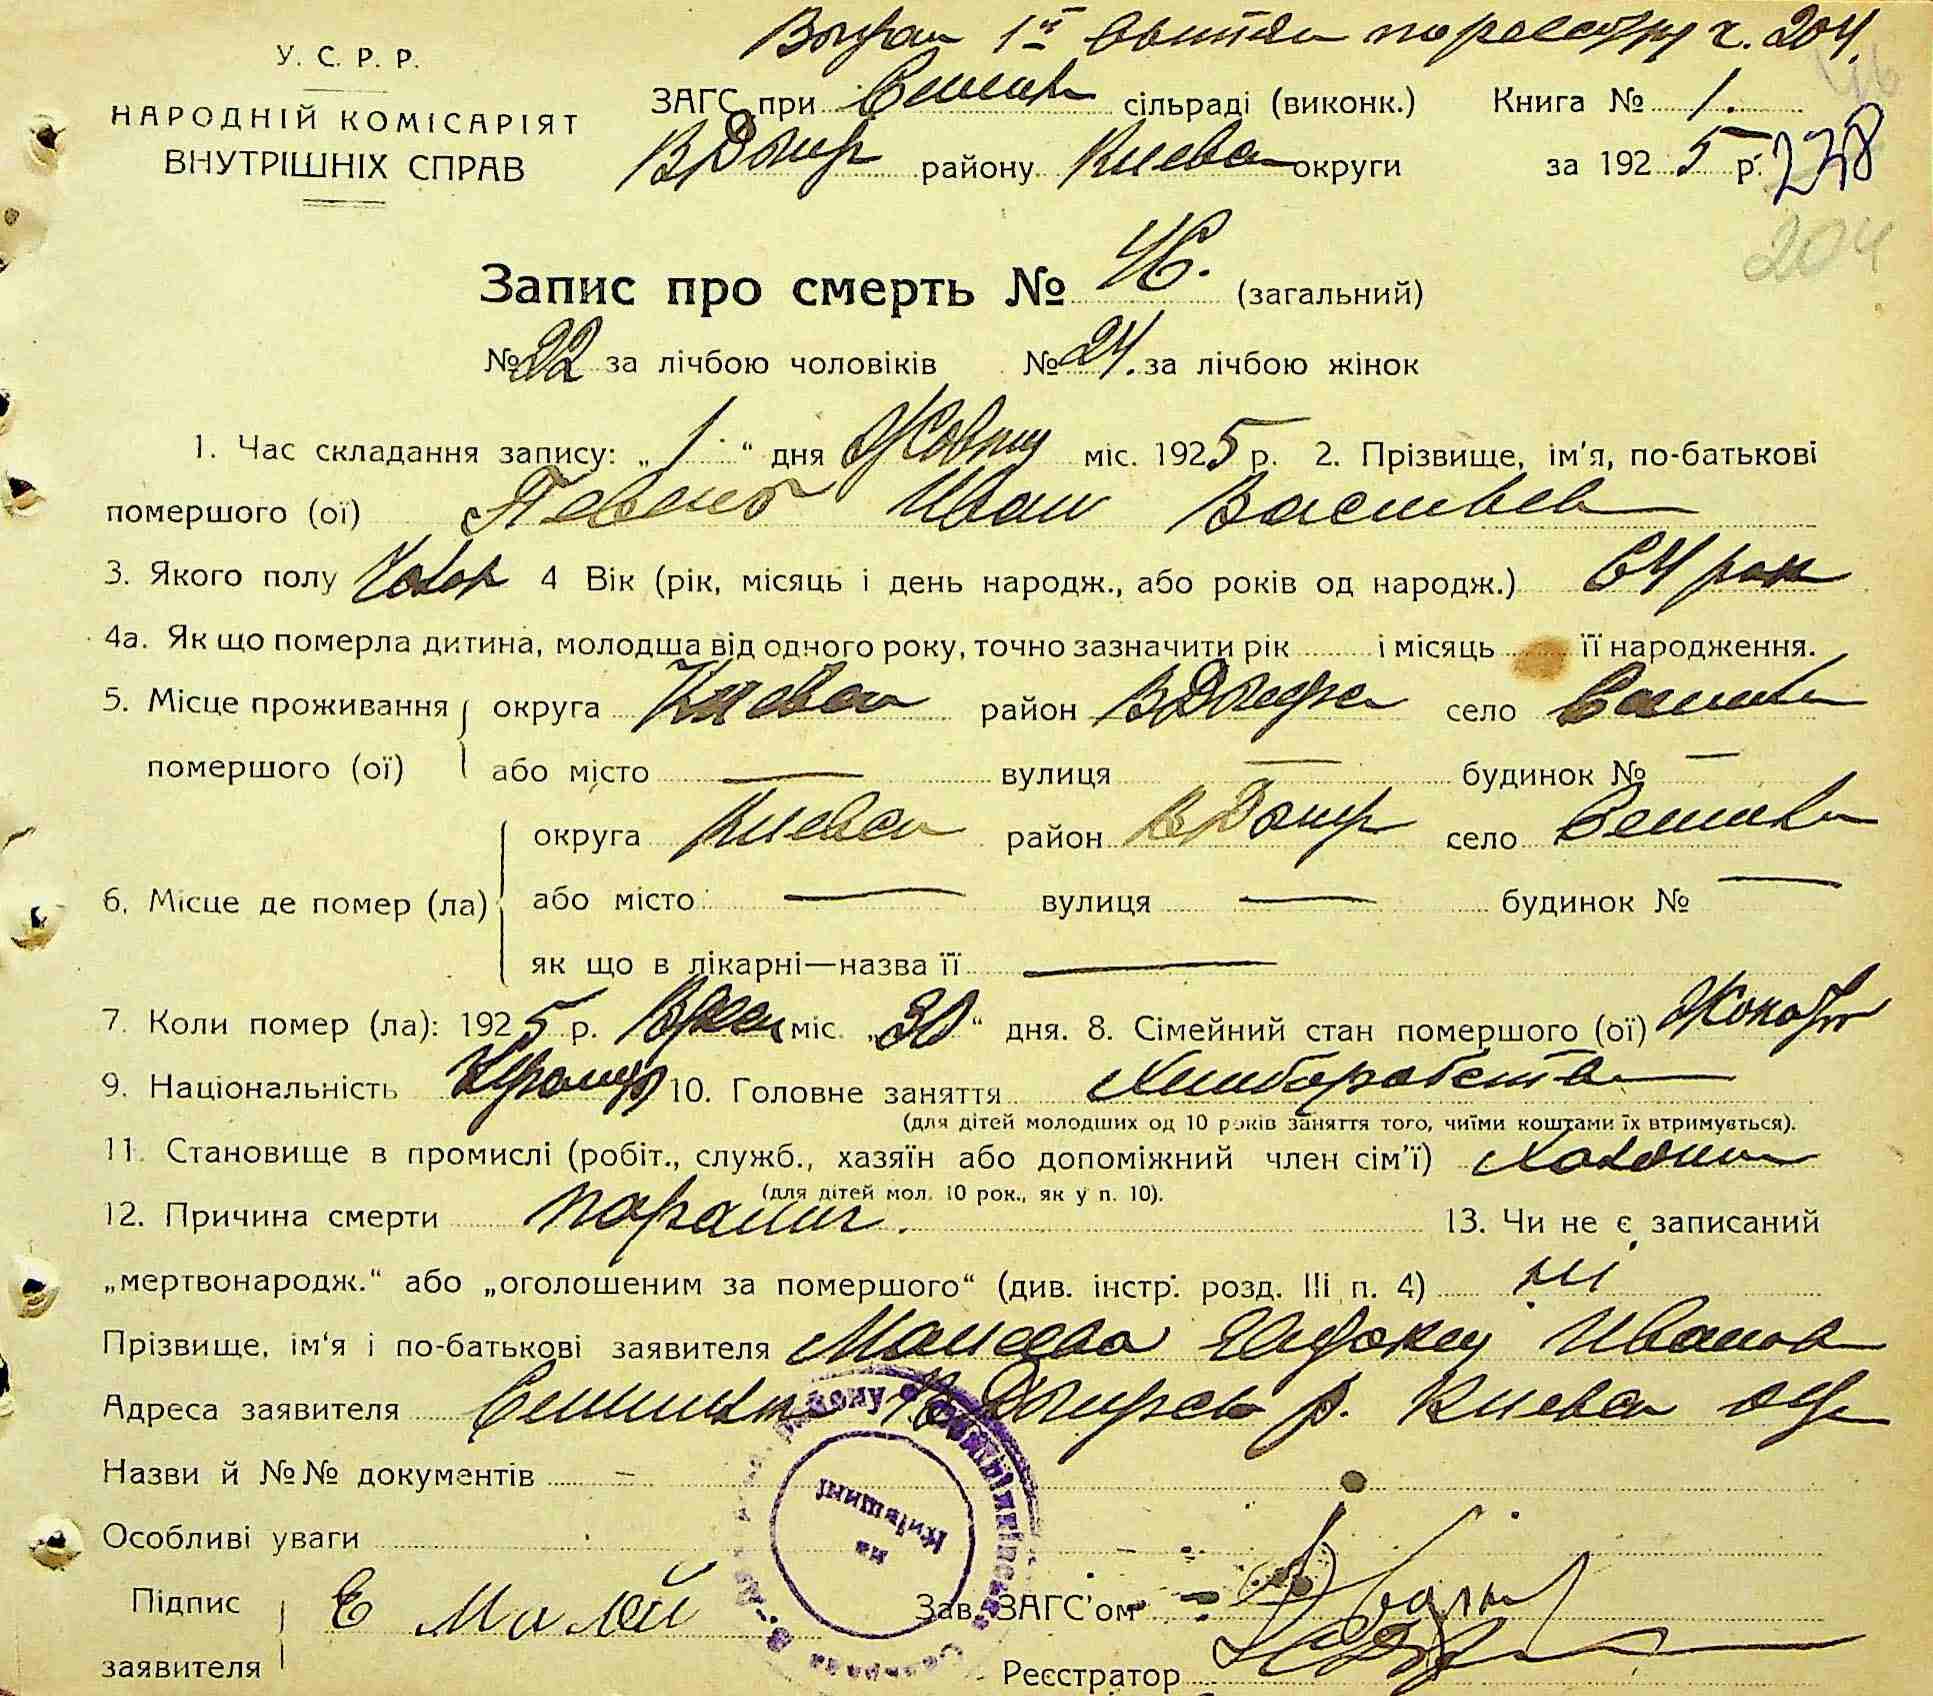 У. С. Р. Р.
НАРОДНІЙ КОМІСАРІЯТ
ВНУТРІШНІХ СПРАВ
1й по реестру ч. 204.
ЗАГС при сільраді (виконк.) Книга № 1.
ВДымр району Киевск округи за 1925 р. 238
204
Запис про смерть № 46. (загальний)
№ 22 за лічбою чоловіків № 24. за лічбою жінок
1. Час складання запису: „1“ дня Жовтн міс. 1925 р. 2. Прізвище, ім'я, по-батькові
помершого (ої) Певень Иван Васильев
3. Якого полу Чолов 4 Вік (рік, місяць і день народж., або років од народж.) 64 рок
4а. Як що померла дитина, молодша від одного року, точно зазначити рік і місяць її народження.
5. Місце проживання помершого (ої) округа Киевск район ВДымерск село
або місто — вулиця — будинок № —
6. Місце де помер (ла) округа Киевск район ВДымр село
або місто — вулиця — будинок № —
як що в лікарні—назва її —
7. Коли помер (ла): 1925 р. міс. „30“ дня. 8. Сімейний стан помершого (ої) Жонат
9. Національність 10. Головне заняття Хлиборобство
(для дітей молодших од 10 років заняття того, чиїми коштами їх втримується).
11. Становище в промислі (робіт., служб., хазяїн або допоміжний член сім'ї)
(для дітей мол. 10 рок., як у п. 10).
12. Причина смерти паралич. 13. Чи не є записаний
„мертвонародж.“ або „оголошеним за помершого“ (див. інстр. розд. III п. 4) ні
Прізвище, ім'я і по-батькові заявителя Иванов
Адреса заявителя ВДымерск р. Киевск окр
Назви й №№ документів –
Особливі уваги
на Київщині
Підпис заявителя Е Малєй
Зав. ЗАГС'ом
Реєстратор